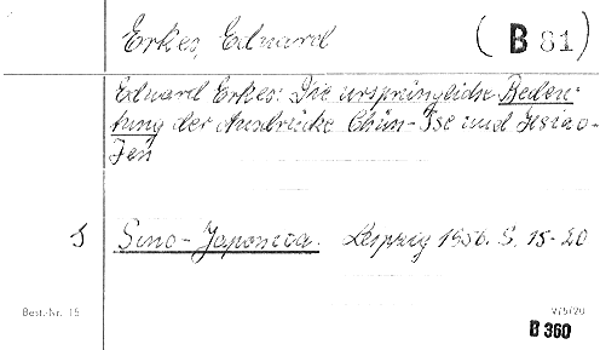 Erkes, Eduard
(B 81)
Eduard Erkes: Die ursprüngliche Bedeu-
tung der Ausdrücke Chün-Tse und Hsiao-
Jen
S Sino-Japonica. Leipzig 1956. S. 15-20
Best.-Nr. 15
V/5/20
B 360